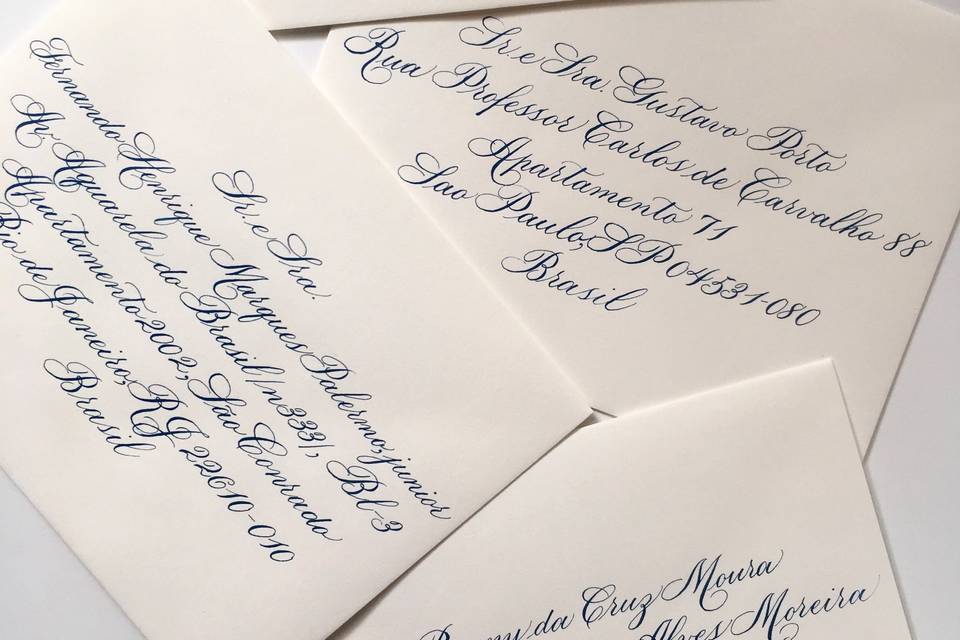 Sr. e Sra.
Fernando Henrique Marques Palermo, junior
Av. Aquarela do Brasil /n333/, Bl-3
Apartamento 2002, São Conrado
Rio de Janeiro, RJ 22610-010
Brasil
Sr. e Sra. Gustavo Porto
Rua Professor Carlos de Carvalho 88
Apartamento 71
Sao Paulo, SP 04531-080
Brasil
da Cruz Moura
Alves Moreira